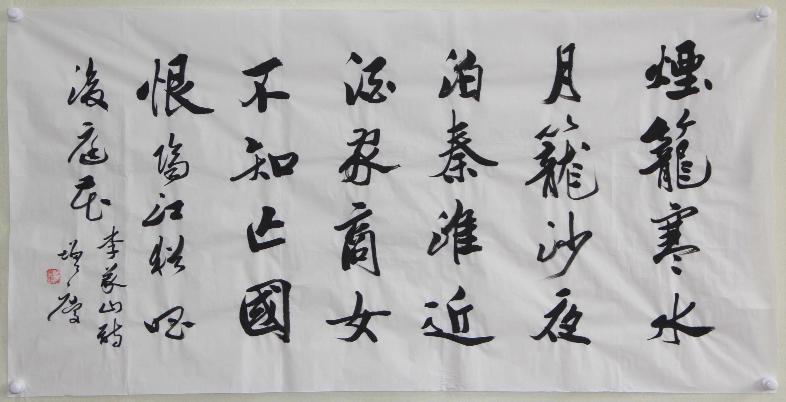 煙籠寒水
月籠沙夜
泊秦淮近
酒家商女
不知亡國
恨隔江猶唱
後庭花
李義山詩